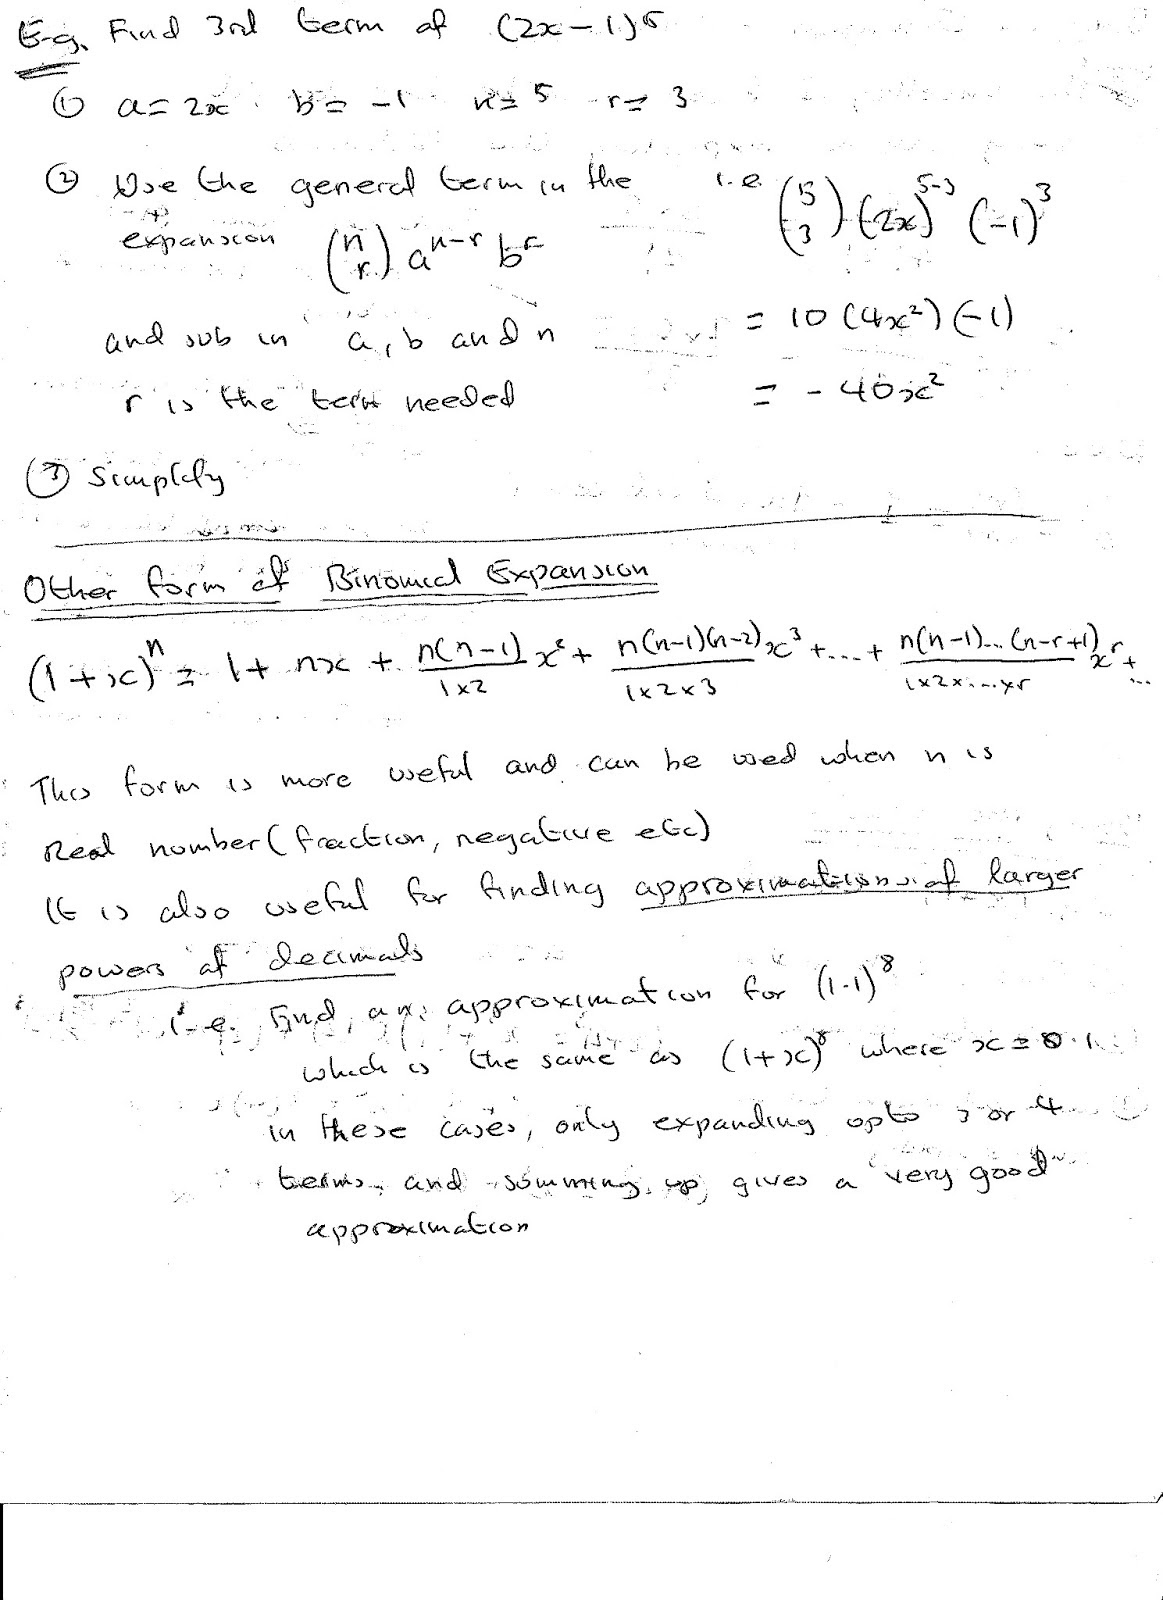 E.g. Find 3rd term of (2x-1)⁵
① a = 2x b = -1 n = 5 r = 3
② Use the general term in the i.e (5 3) (2x)⁵⁻³ (-1)³
expansion (n r) aⁿ⁻ʳ bʳ
and sub in a, b and n = 10 (4x²) (-1)
r is the term needed = - 40x²
③ Simplify
Other form of Binomial Expansion
(1+x)ⁿ = 1 + nx + n(n-1)/1x2 x² + n(n-1)(n-2)/1x2x3 x³ + ... + n(n-1)...(n-r+1)/1x2x...xr xʳ + ...
This form is more useful and can be used when n is
Real number (fraction, negative etc)
It is also useful for finding approximations of larger
powers of decimals
i.e. Find an approximation for (1.1)⁸
which is the same as (1+x)⁸ where x = 0.1
in these cases, only expanding upto 3 or 4
terms and summing up gives a very good
approximation